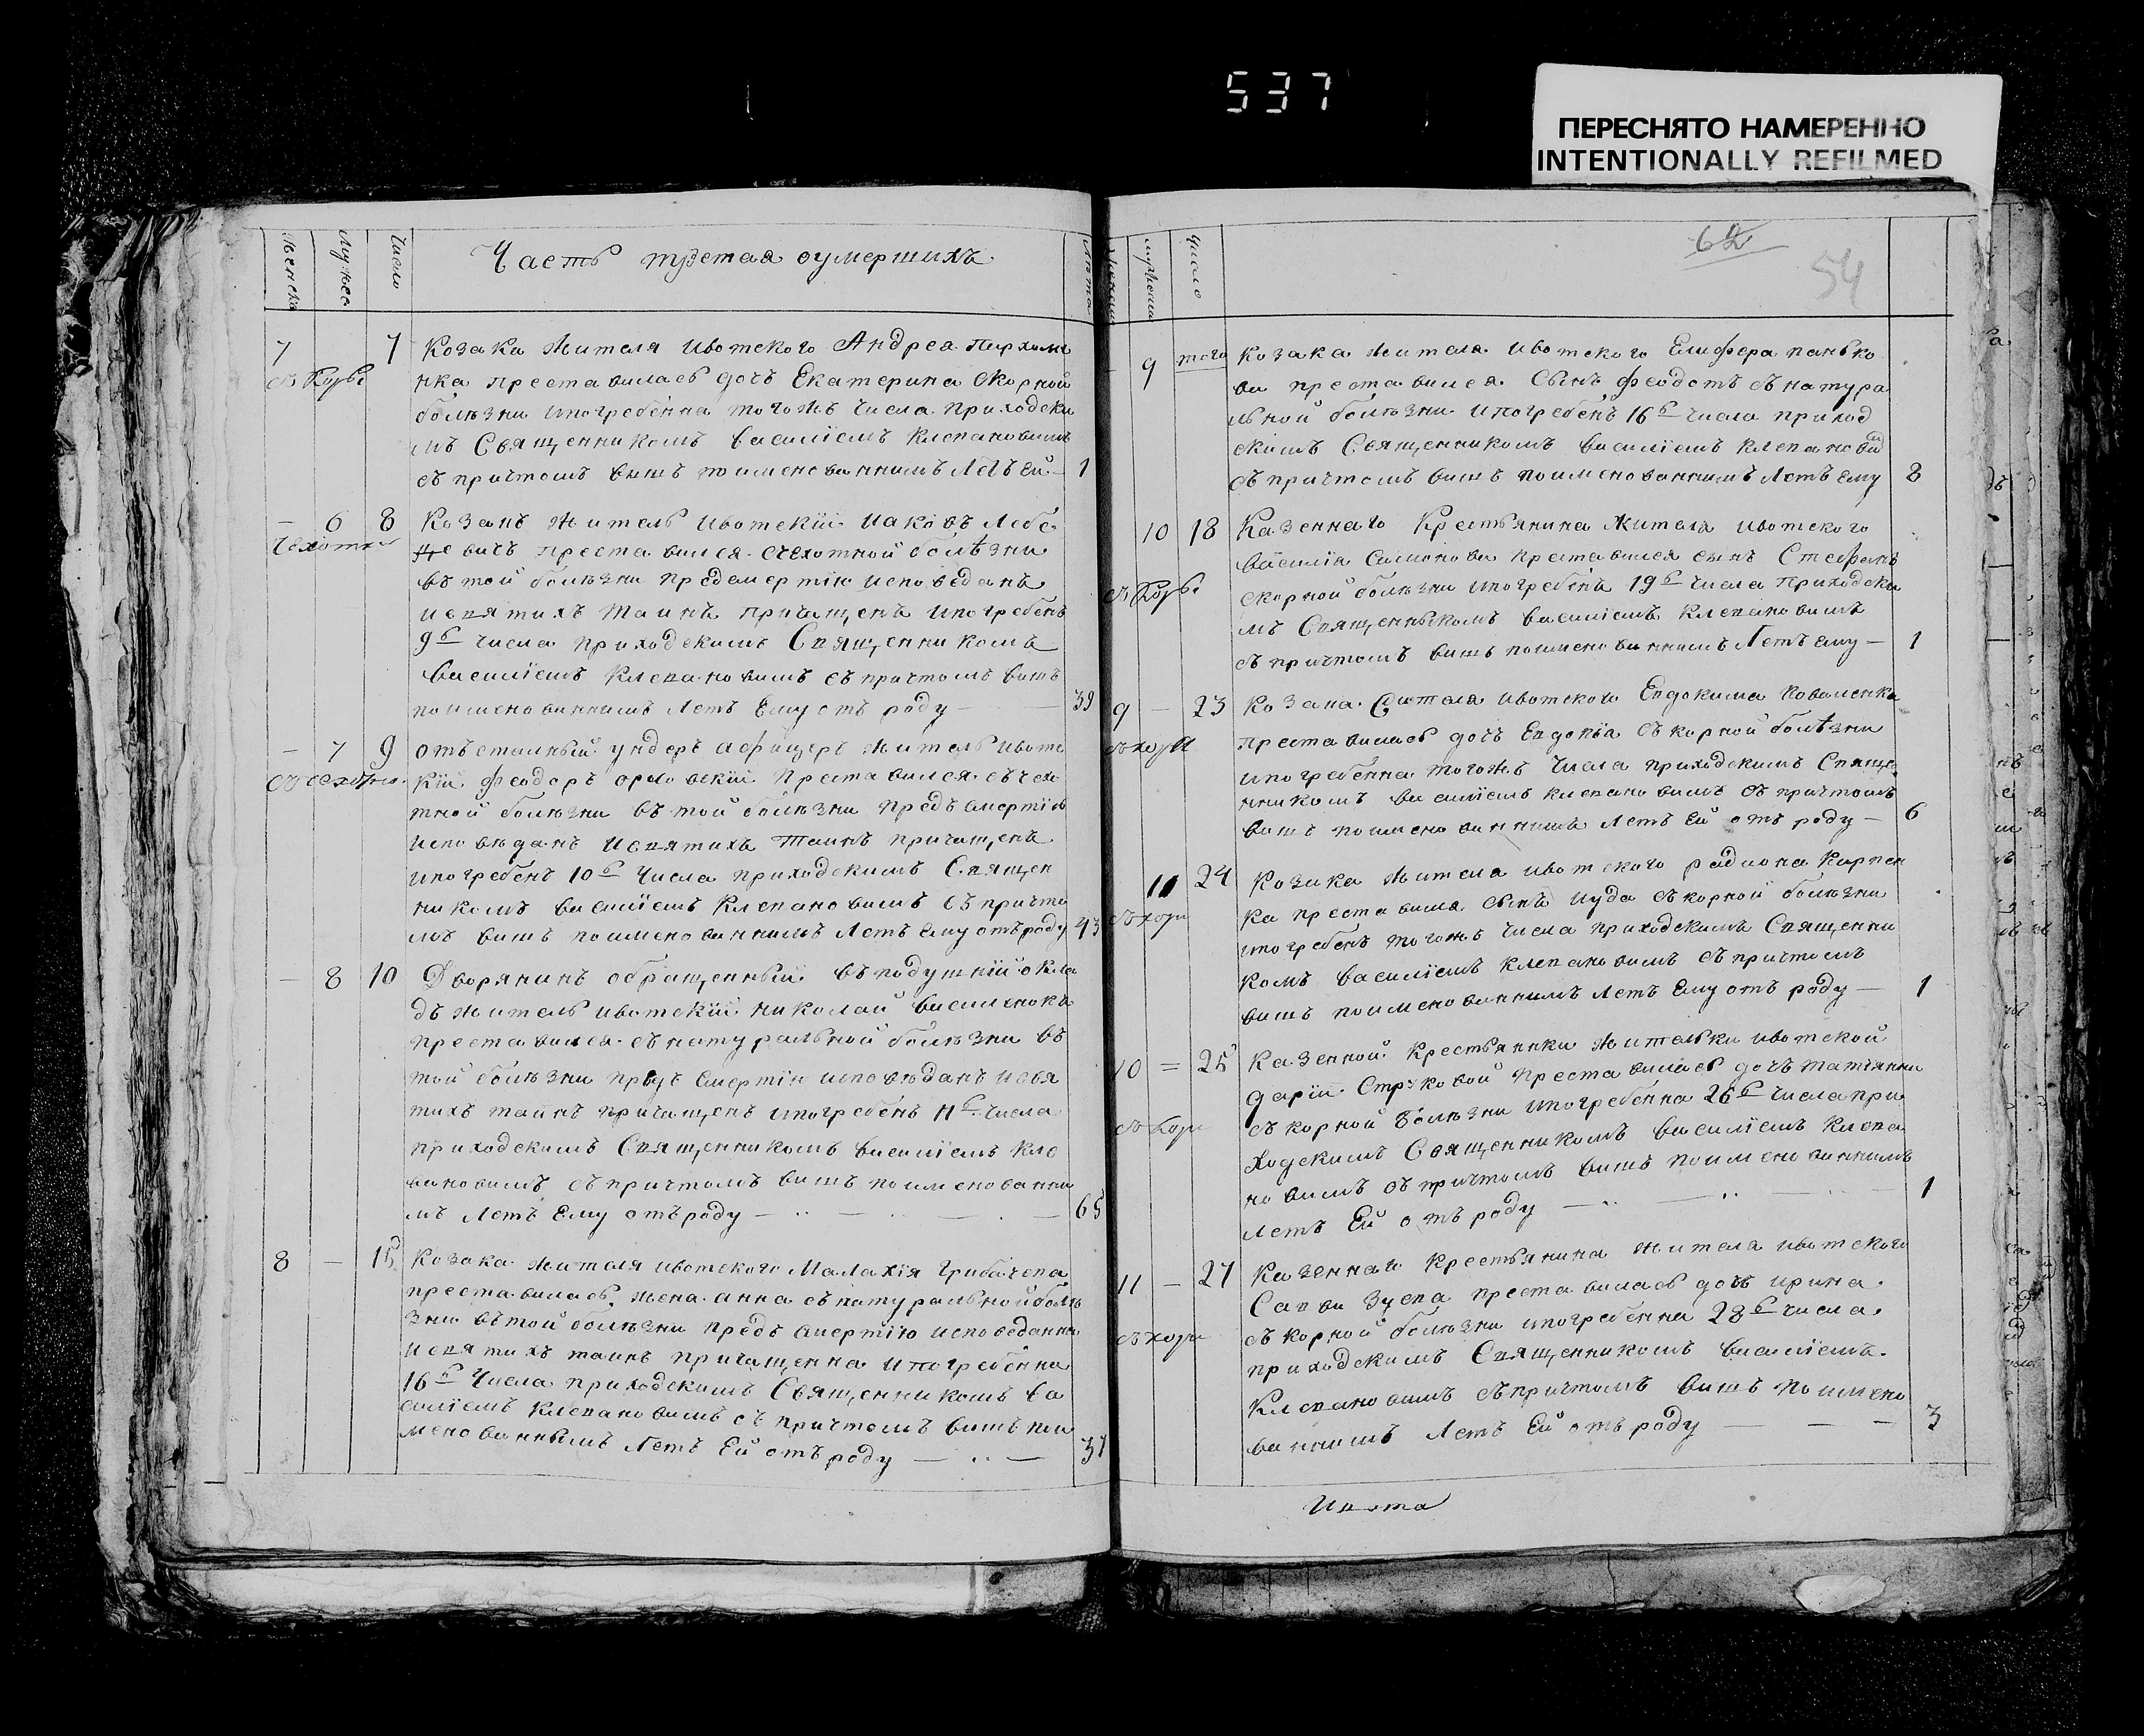 537
ПЕРЕСНЯТО НАМЕРЕННО
INTENTIONALLY REFILMED
Женска
Мужеск
Число
Часть третая оумершихъ
Лѣта
7 7 Козака жителя ивотского Андрея Пархоме
съ Корьи нка преставилась дочь Екатерина Скорной
болѣзни ипогребенна тогожъ числа приходски
мъ Священникомъ василіемъ клепановимъ
съ причтомъ вишъ поименованнимъ Летъ ей 1
— 6 8 Козакъ житель ивотскій Иаковъ Лебе
Чехотки девичъ преставился счехотной болѣзни
въ той болѣзни предсмертію исповеданъ
исвятихъ таинъ причащенъ ипогребенъ
9г числа приходскимъ Священникомъ
василіемъ Клепановимъ съ причтомъ вишъ
поименованнимъ Летъ Ему отъ роду — 39
— 7 9 отъставный ундеръ афицеръ житель ивотс
кій Феодоръ орловскій преставился съчехо
тной болѣзни въ той болѣзни предъ смертію
исповѣданъ исвятихъ таинъ причащенъ
ипогребенъ 10г числа приходскимъ Священ
никомъ василіемъ Клепановимъ съ причто
мъ вишъ поименованнимъ Летъ Ему отъ роду 43
— 8 10 Дворянинъ обращенный въ подушній окла
дъ житель ивотскій николай василенокъ
преставился съ натуральной болѣзни въ
той болѣзни предъ смертію исповѣданъ исвя
тихъ таинъ причащенъ ипогребенъ 11г числа
приходскимъ Священникомъ василіемъ кле
пановимъ съ причтомъ вишъ поименованни
мъ Летъ Ему отъ роду — 65
8 — 15 Козака жителя ивотского Малахія грибачева
преставилась жена анна съ натуральной болѣ
зни въ той болѣзни предъ смертію исповеданна
исвятихъ таинъ причащенна ипогребенна
16г числа приходскимъ Священникомъ ва
силіемъ клепановимъ съ причтомъ вишъ пои
менованнымъ Летъ Ей отъ роду — 37
мужеска
число
62
54
9 того Козака жителя ивотского Елифера панько
ва преставился Сынъ феодотъ съ натура
льной болѣзни ипогребенъ 16г числа приход
скимъ Священникомъ василіемъ клепанови
съ причтомъ вишъ поименованнимъ Летъ ему 8
10 18 Казеннаго Крестьянина жителя ивотского
василія симонова преставился сынъ Стефанъ
съ Корьи скорной болѣзни ипогребенъ 19г числа приходски
мъ Священникомъ василіемъ Клепановимъ
съ причтомъ вишъ поименованнимъ Летъ ему — 1
9 — 23 Козака жителя ивотского Евдокима коваленка
съ кори преставилась дочь Евдокія съ корной болѣзни
ипогребенна тогожъ числа приходскимъ Священ
никомъ василіемъ клепановимъ съ причтомъ
вишъ поименованнимъ Летъ Ей отъ роду — 6
11 24 Козака жителя ивотского радиона Карпен
съ кори ка преставился сынъ иуда съ корной болѣзни
ипогребенъ тогожъ числа приходскимъ Священни
комъ василіемъ клепановимъ съ причтомъ
вишъ поименованнимъ Летъ Ему отъ роду — 1
10 = 25 Казенной Крестьянки жительки ивотской
дарій преставилась дочь татіянна
съ кори съ корной болѣзни ипогребенна 26г числа при
ходскимъ Священникомъ василіемъ клепа
новимъ съ причтомъ вишъ поименованнимъ
Летъ Ей отъ роду — 1
11 — 27 Казеннаго Крестьянина жителя ивотского
Савви Зуева преставилась дочь ирина
съ кори съ корной болѣзни ипогребенна 28г числа
приходскимъ Священникомъ василіемъ
Клепановимъ съ причтомъ вишъ поимено
ваннимъ Летъ Ей отъ роду — 3
Ивота